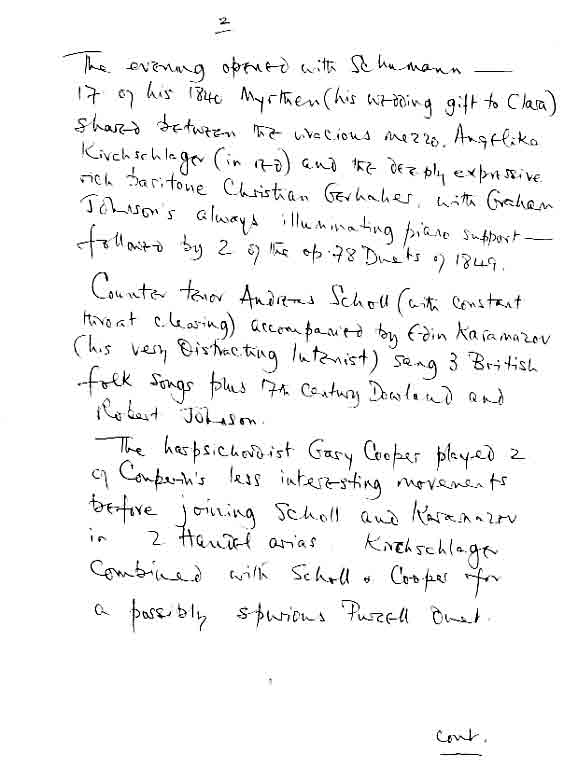 2
The evening opened with Schumann —
17 of his 1840 Myrthen (his wedding gift to Clara)
shared between the vivacious mezzo, Angelika
Kirchschlager (in red) and the deeply expressive
rich baritone Christian Gerhaher, with Graham
Johnson's always illuminating piano support —
followed by 2 of the op.78 Duets of 1849.
Counter tenor Andreas Scholl (with constant
throat clearing) accompanied by Edin Karamazov
(his very distracting lutenist) sang 3 British
folk songs plus 17th century Dowland and
Robert Johnson.
The harpsichordist Gary Cooper played 2
of Couperin's less interesting movements
before joining Scholl and Karamazov
in 2 Handel arias. Kirchschlager
combined with Scholl & Cooper for
a possibly spurious Purcell Duet.
cont.